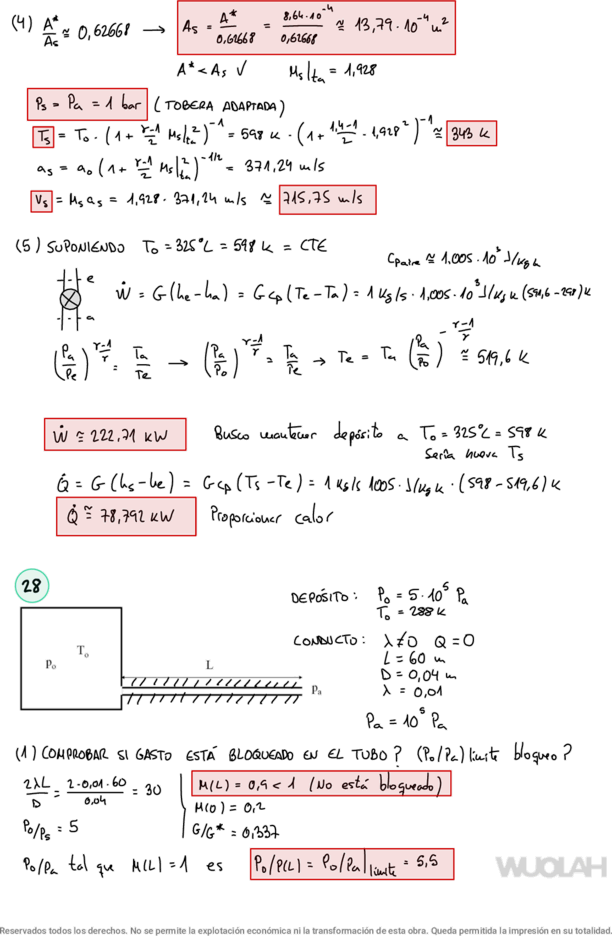 (4) A*/As ≅ 0,62668 → As = A*/0,62668 = 8,64·10⁻⁴/0,62668 ≅ 13,79·10⁻⁴ m²
A* < As ✓ Ms|ta = 1,928
Ps = Pa = 1 bar (TOBERA ADAPTADA)
Ts = To · (1 + (γ-1)/2 Ms|²ta)⁻¹ = 598 K · (1 + (1,4-1)/2 · 1,928²)⁻¹ ≅ 343 K
as = ao (1 + (γ-1)/2 Ms|²ta)^(-1/2) = 371,24 m/s
Vs = Ms as = 1,928 · 371,24 m/s ≅ 715,75 m/s
(5) SUPONIENDO To = 325°C = 598 K = CTE
Cp aire ≅ 1,005·10³ J/kg K
e
Ẇ = G(he-ha) = G cp (Te-Ta) = 1 kg/s · 1,005·10³ J/kg K (519,6-298) K
a
(Pa/Pe)^((γ-1)/γ) = Ta/Te → (Pa/Po)^((γ-1)/γ) = Ta/Te → Te = Ta (Pa/Po)^(-(γ-1)/γ) ≅ 519,6 K
Ẇ ≅ 222,71 kW Busco mantener depósito a To = 325°C = 598 K
Sería nueva Ts
Q̇ = G (hs-he) = G cp (Ts-Te) = 1 kg/s 1005 · J/kg K · (598-519,6) K
Q̇ ≅ 78,792 kW Proporcionar calor
28
DEPÓSITO: Po = 5·10⁵ Pa
To = 288 K
CONDUCTO: λ≠0 Q=0
L = 60 m
D = 0,04 m
λ = 0,01
Pa = 10⁵ Pa
po To L pa
(1) COMPROBAR SI GASTO ESTÁ BLOQUEADO EN EL TUBO? (Po/Pa) límite bloqueo?
2λL/D = 2·0,01·60/0,04 = 30
M(L) = 0,9 < 1 (No está bloqueado)
M(0) = 0,2
Po/Ps = 5
G/G* = 0,337
Po/Pa tal que M(L) = 1 es Po/P(L) = Po/Pa|límite = 5,5
WUOLAH
Reservados todos los derechos. No se permite la explotación económica ni la transformación de esta obra. Queda permitida la impresión en su totalidad.